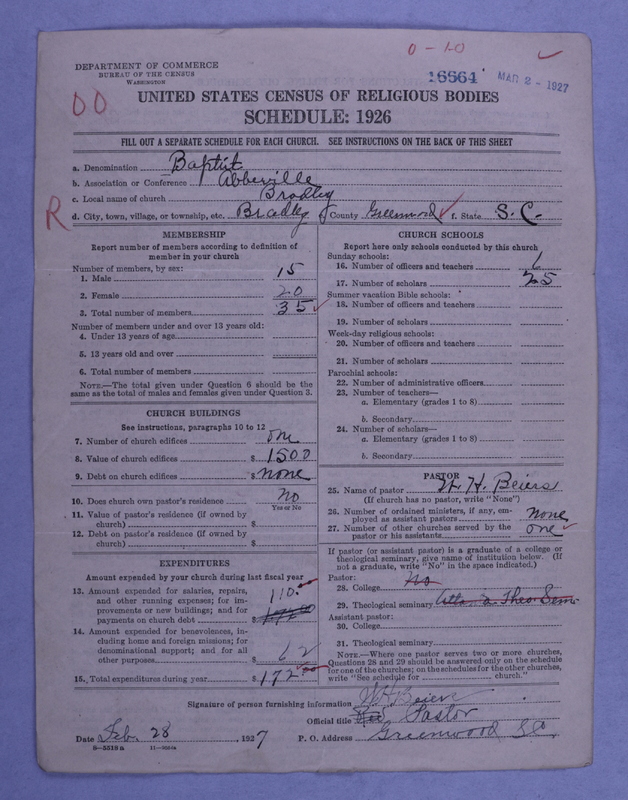 0-10
DEPARTMENT OF COMMERCE
BUREAU OF THE CENSUS
WASHINGTON
16564 MAR 2 - 1927
UNITED STATES CENSUS OF RELIGIOUS BODIES
SCHEDULE: 1926
FILL OUT A SEPARATE SCHEDULE FOR EACH CHURCH. SEE INSTRUCTIONS ON THE BACK OF THIS SHEET
a. Denomination Baptist
b. Association or Conference Abbeville
c. Local name of church Bradley
R d. City, town, village, or township, etc. Bradley County Greenwood f. State S. C.
MEMBERSHIP
Report number of members according to definition of
member in your church
Number of members, by sex:
1. Male 15
2. Female 20
3. Total number of members 35
Number of members under and over 13 years old:
4. Under 13 years of age
5. 13 years old and over
6. Total number of members
NOTE.—The total given under Question 6 should be the
same as the total of males and females given under Question 3.
CHURCH BUILDINGS
See instructions, paragraphs 10 to 12
7. Number of church edifices one
8. Value of church edifices $ 1500
9. Debt on church edifices $ none
10. Does church own pastor's residence No
Yes or No
11. Value of pastor's residence (if owned by
church) $
12. Debt on pastor's residence (if owned by
church) $
EXPENDITURES
Amount expended by your church during last fiscal year
13. Amount expended for salaries, repairs,
and other running expenses; for im-
provements or new buildings; and for
payments on church debt $ 110.
14. Amount expended for benevolences, in-
cluding home and foreign missions; for
denominational support; and for all
other purposes 62
15. Total expenditures during year $ 172
CHURCH SCHOOLS
Report here only schools conducted by this church
Sunday schools:
16. Number of officers and teachers 6
17. Number of scholars 25
Summer vacation Bible schools:
18. Number of officers and teachers
19. Number of scholars
Week-day religious schools:
20. Number of officers and teachers
21. Number of scholars
Parochial schools:
22. Number of administrative officers
23. Number of teachers—
a. Elementary (grades 1 to 8)
b. Secondary
24. Number of scholars—
a. Elementary (grades 1 to 8)
b. Secondary
PASTOR
25. Name of pastor W. H. Beiers
(If church has no pastor, write "None")
26. Number of ordained ministers, if any, em-
ployed as assistant pastors none
27. Number of other churches served by the
pastor or his assistants one
If pastor (or assistant pastor) is a graduate of a college or
theological seminary, give name of institution below. (If
not a graduate, write "No" in the space indicated.)
Pastor:
28. College No
29. Theological seminary Theo. Sem.
Assistant pastor:
30. College
31. Theological seminary
NOTE.—Where one pastor serves two or more churches,
Questions 28 and 29 should be answered only on the schedule
for one of the churches; on the schedules for the other churches,
write "See schedule for church."
Signature of person furnishing information W H Beiers
Official title Pastor
Date Feb. 28, 1927 P. O. Address Greenwood SC
8—5518a